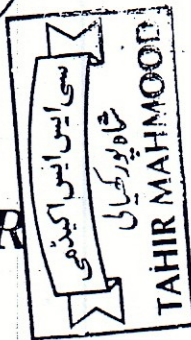 سی ایس ایس اکیڈمی
شاہ پور کھیالی
TAHIR MAHMOOD
R